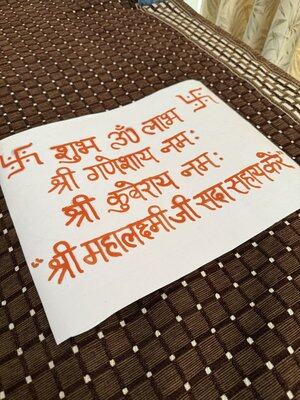 卐 शुभ ॐ लाभ 卐
श्री गणेशाय नमः
श्री कुबेराय नमः
श्री महालक्ष्मी जी सदा सहाय करें